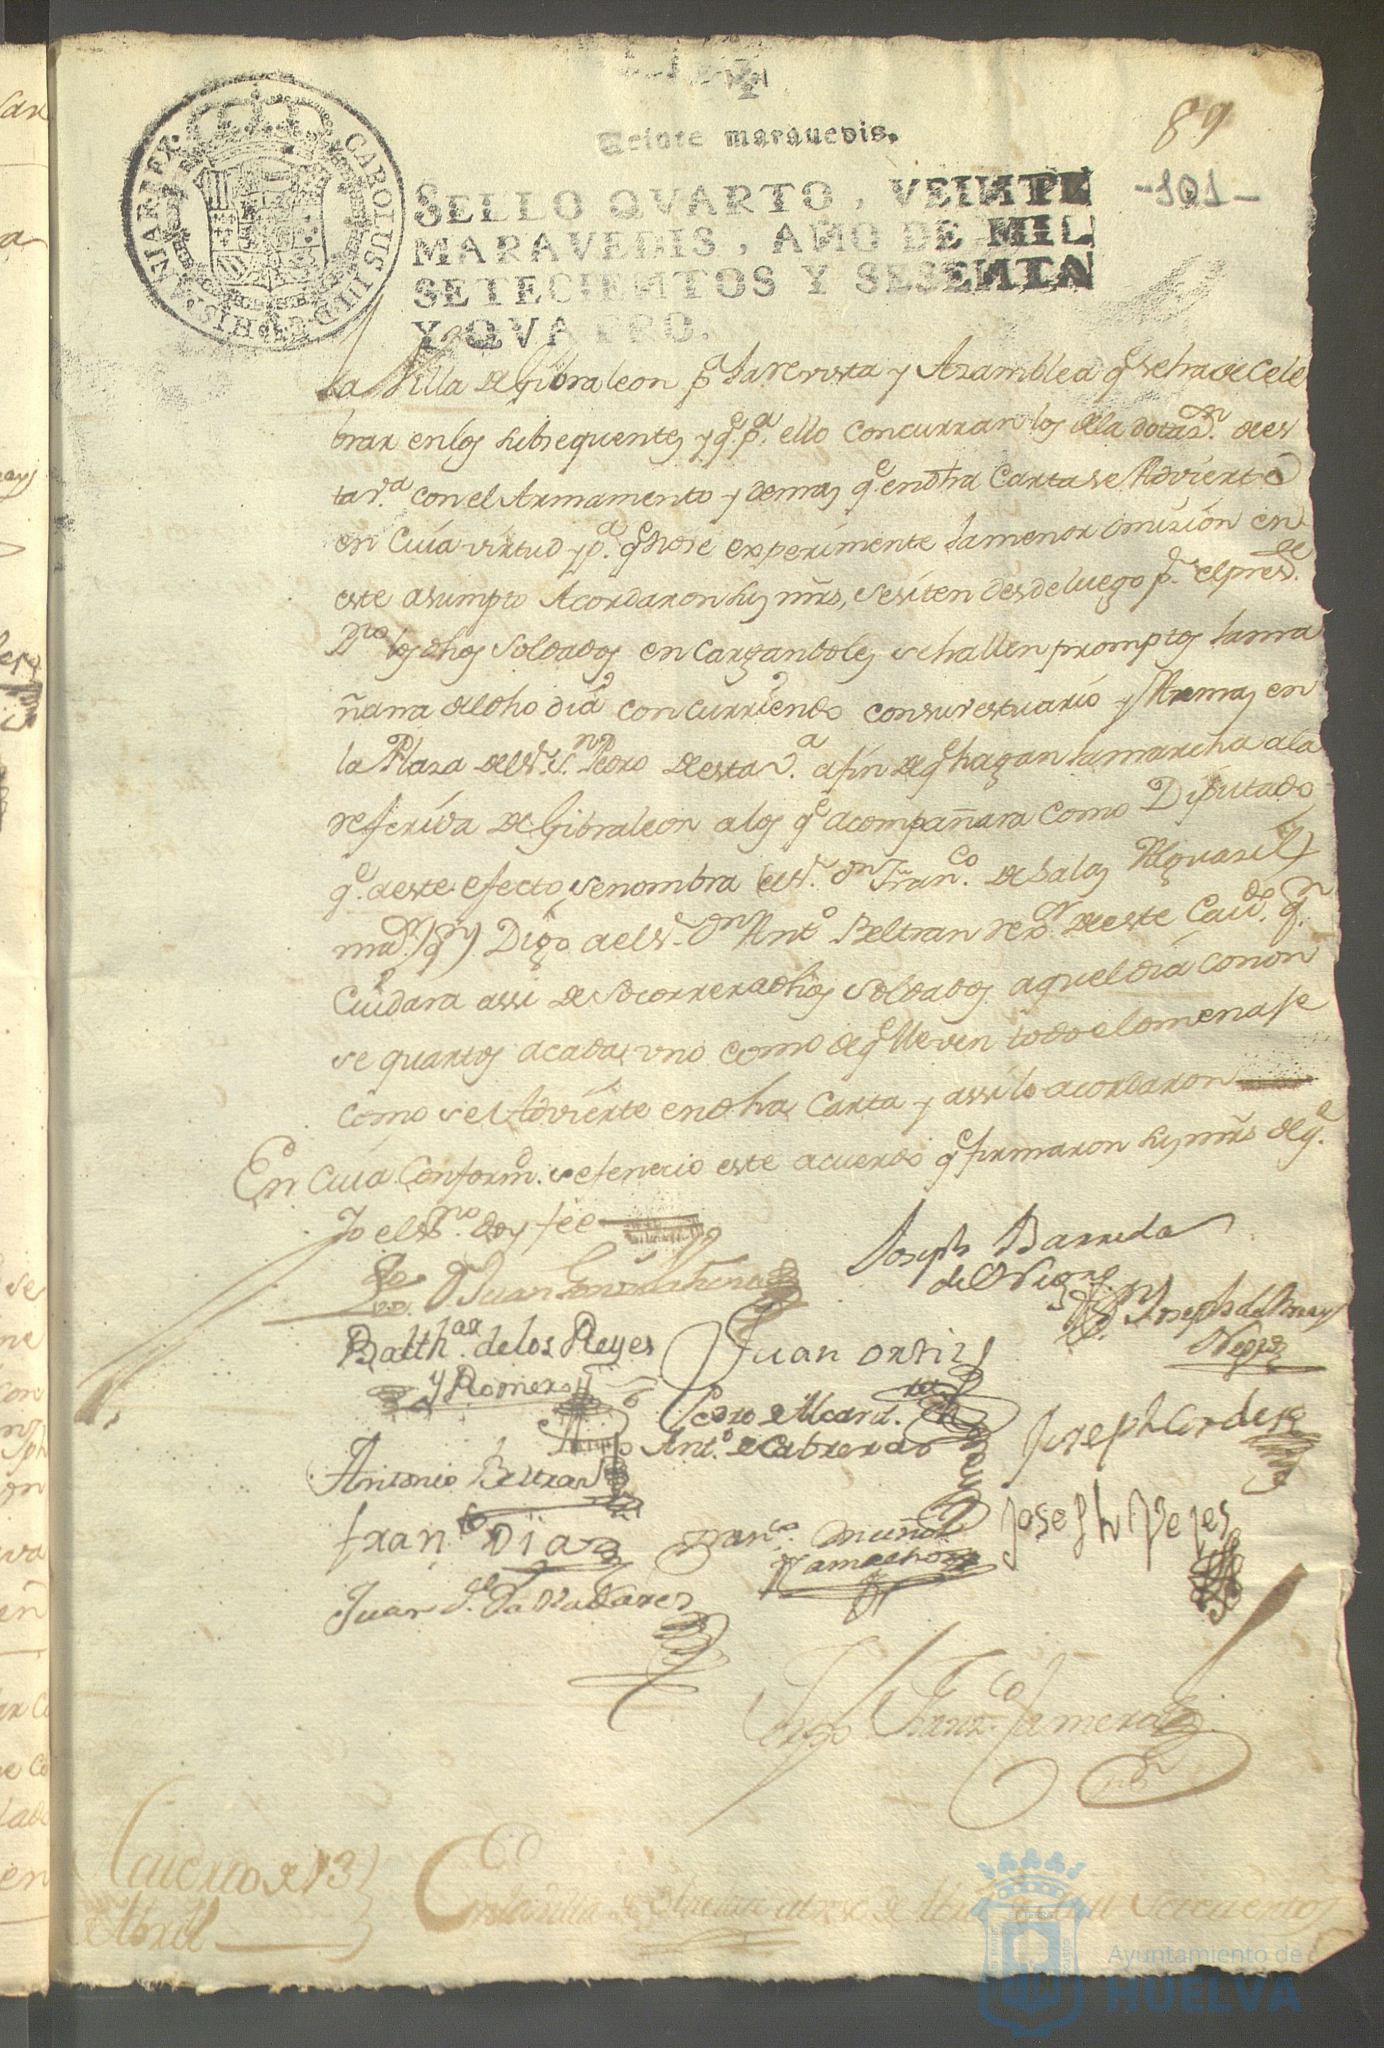 89
-101-
Veinte marauedis.
CAROLUS III D G HISPANIAR REX
SELLO QVARTO, VEINTE
MARAVEDIS, AÑO DE MIL
SETECIENTOS Y SESENTA
Y QVATRO.
la Villa de Gibraleon pa la revista y Azamblea qe se ha de Cele
brar en los subsequentes y qe pa ello concurran los de la dotazn de es
ta va con el Armamento y demas qe en dha Carta se Advierte
en Cuia virtud y pa qe no se experimente la menor omision en
este asumpto Acordaron sus mrds, se siten desde luego pr el presde
Dno los dhos Soldados encargandoles se hallen promptos la ma
ñana de dho dia concurriendo con su vestuario y Armas en
la Plaza del Sr Sn Pedro de esta va a fin de qe hagan la marcha a la
referida de Gibraleon a los qe acompañara como Diputado
qe a este efecto se nombra el Sr Dn Franco de Salas Alguasil
mar qn Digo a el Sr Dn Anto Beltran rexor de este Cavdo qn
Cuidara assi de socorrer a dhos soldados aquel dia con on
se quartos a cada uno como de qe lleven todo el omenase
como se Advierte en dha Carta y assi lo acordaron
En Cuia Conformd se fenecio este acuerdo qe firmaron sus mrds de qe
Yo el Sno doy fee
Joseph Barreda
Dn Juan
Dn Joseph de
Negro
Balthar de los Reyes
y Romero
Juan Ortiz
Pedro de Alcard.
Anto de Cabrera
Joseph Cordero
Antonio Beltran
franco Diaz
Franco Muñoz
Camacho
Joseph Reyes
Juan de Valladares
Diego Franco
Acuerdo de 13
de Abril
En la villa de Huelva en trese de Abril de mil Setecientos
Ayuntamiento de
HUELVA